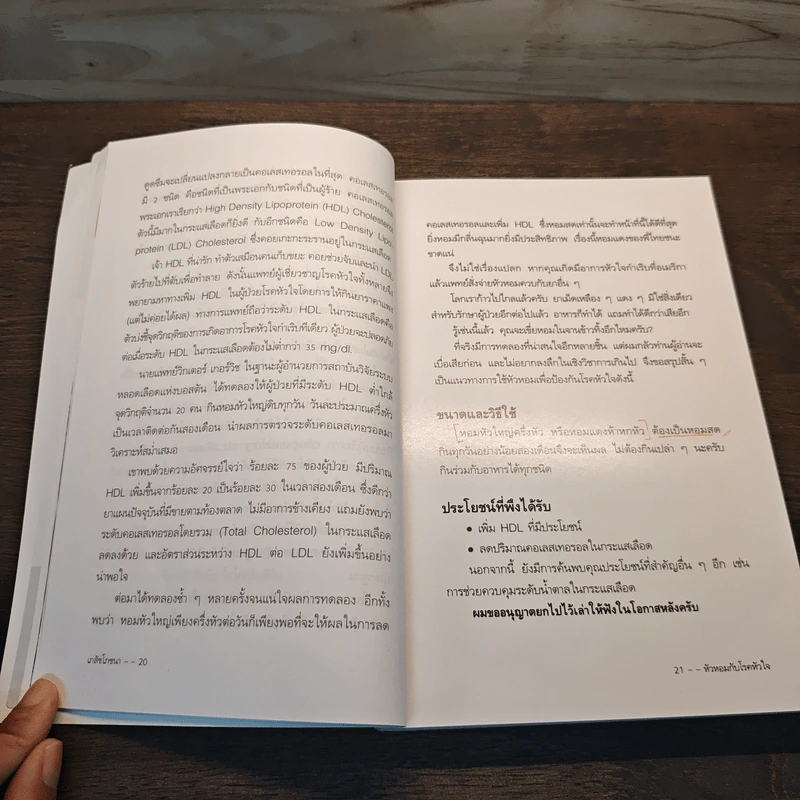 ดูดซึมจะเปลี่ยนแปลงกลายเป็นคอเลสเทอรอลในที่สุด คอเลสเทอรอล
มี 2 ชนิด คือชนิดที่เป็นพระเอกกับชนิดที่เป็นผู้ร้าย คอเลสเทอรอล
พระเอกเราเรียกว่า High Density Lipoprotein (HDL) Cholesterol
ตัวนี้มีมากในกระแสเลือดก็ยิ่งดี กับอีกชนิดคือ Low Density Lipo-
protein (LDL) Cholesterol ซึ่งคอยเกะกะระรานอยู่ในกระแสเลือด
เจ้า HDL ที่น่ารัก ทำตัวเสมือนคนเก็บขยะ คอยช่วยจับและนำ LDL
ตัวร้ายไปที่ตับเพื่อทำลาย ดังนั้นแพทย์ผู้เชี่ยวชาญโรคหัวใจทั้งหลายจึง
พยายามหาทางเพิ่ม HDL ในผู้ป่วยโรคหัวใจโดยการให้กินยาราคาแพง
(แต่ไม่ค่อยได้ผล) ทางการแพทย์ถือว่าระดับ HDL ในกระแสเลือดคือ
ตัวบ่งชี้จุดวิกฤติของการเกิดอาการโรคหัวใจกำเริบทีเดียว ผู้ป่วยจะปลอดภัย
ต่อเมื่อระดับ HDL ในกระแสเลือดต้องไม่ต่ำกว่า 35 mg/dl.
นายแพทย์วิกเตอร์ เกอร์วิช ในฐานะผู้อำนวยการสถาบันวิจัยระบบ
หลอดเลือดแห่งบอสตัน ได้ทดลองให้ผู้ป่วยที่มีระดับ HDL ต่ำใกล้
จุดวิกฤติจำนวน 20 คน กินหอมหัวใหญ่ดิบทุกวัน วันละประมาณครึ่งหัว
เป็นเวลาติดต่อกันสองเดือน นำผลการตรวจระดับคอเลสเทอรอลมา
วิเคราะห์สม่ำเสมอ
เขาพบด้วยความอัศจรรย์ใจว่า ร้อยละ 75 ของผู้ป่วย มีปริมาณ
HDL เพิ่มขึ้นจากร้อยละ 20 เป็นร้อยละ 30 ในเวลาสองเดือน ซึ่งดีกว่า
ยาแผนปัจจุบันที่มีขายตามท้องตลาด ไม่มีอาการข้างเคียง แถมยังพบว่า
ระดับคอเลสเทอรอลโดยรวม (Total Cholesterol) ในกระแสเลือด
ลดลงด้วย และอัตราส่วนระหว่าง HDL ต่อ LDL ยังเพิ่มขึ้นอย่าง
น่าพอใจ
ต่อมาได้ทดลองซ้ำ ๆ หลายครั้งจนแน่ใจผลการทดลอง อีกทั้ง
พบว่า หอมหัวใหญ่เพียงครึ่งหัวต่อวันก็เพียงพอที่จะให้ผลในการลด
เภสัชโภชนา -- 20
คอเลสเทอรอลและเพิ่ม HDL ซึ่งหอมสดเท่านั้นจะทำหน้าที่นี้ได้ดีที่สุด
ยิ่งหอมมีกลิ่นฉุนมากยิ่งมีประสิทธิภาพ เรื่องนี้หอมแดงของพี่ไทยชนะ
ขาดแน่
จึงไม่ใช่เรื่องแปลก หากคุณเกิดมีอาการหัวใจกำเริบที่อเมริกา
แล้วแพทย์สั่งจ่ายหัวหอมควบกับยาอื่น ๆ
โลกเราก้าวไปไกลแล้วครับ ยาเม็ดเหลือง ๆ แดง ๆ มิใช่สิ่งเดียว
สำหรับรักษาผู้ป่วยอีกต่อไปแล้ว อาหารก็ทำได้ แถมทำได้ดีกว่าเสียอีก
รู้เช่นนี้แล้ว คุณจะเขี่ยหอมในจานข้าวทิ้งอีกไหมครับ?
ที่จริงมีการทดลองที่น่าสนใจอีกหลายชิ้น แต่ผมกลัวท่านผู้อ่านจะ
เบื่อเสียก่อน และไม่อยากลงลึกในเชิงวิชาการเกินไป จึงขอสรุปสั้น ๆ
เป็นแนวทางการใช้หัวหอมเพื่อป้องกันโรคหัวใจดังนี้
ขนาดและวิธีใช้
หอมหัวใหญ่ครึ่งหัว หรือหอมแดงห้าหกหัว ต้องเป็นหอมสด
กินทุกวันอย่างน้อยสองเดือนจึงจะเห็นผล ไม่ต้องกินเปล่า ๆ นะครับ
กินร่วมกับอาหารได้ทุกชนิด
ประโยชน์ที่พึงได้รับ
● เพิ่ม HDL ที่มีประโยชน์
● ลดปริมาณคอเลสเทอรอลในกระแสเลือด
นอกจากนี้ ยังมีการค้นพบคุณประโยชน์ที่สำคัญอื่น ๆ อีก เช่น
การช่วยควบคุมระดับน้ำตาลในกระแสเลือด
ผมขออนุญาตยกไปไว้เล่าให้ฟังในโอกาสหลังครับ
21 -- หัวหอมกับโรคหัวใจ